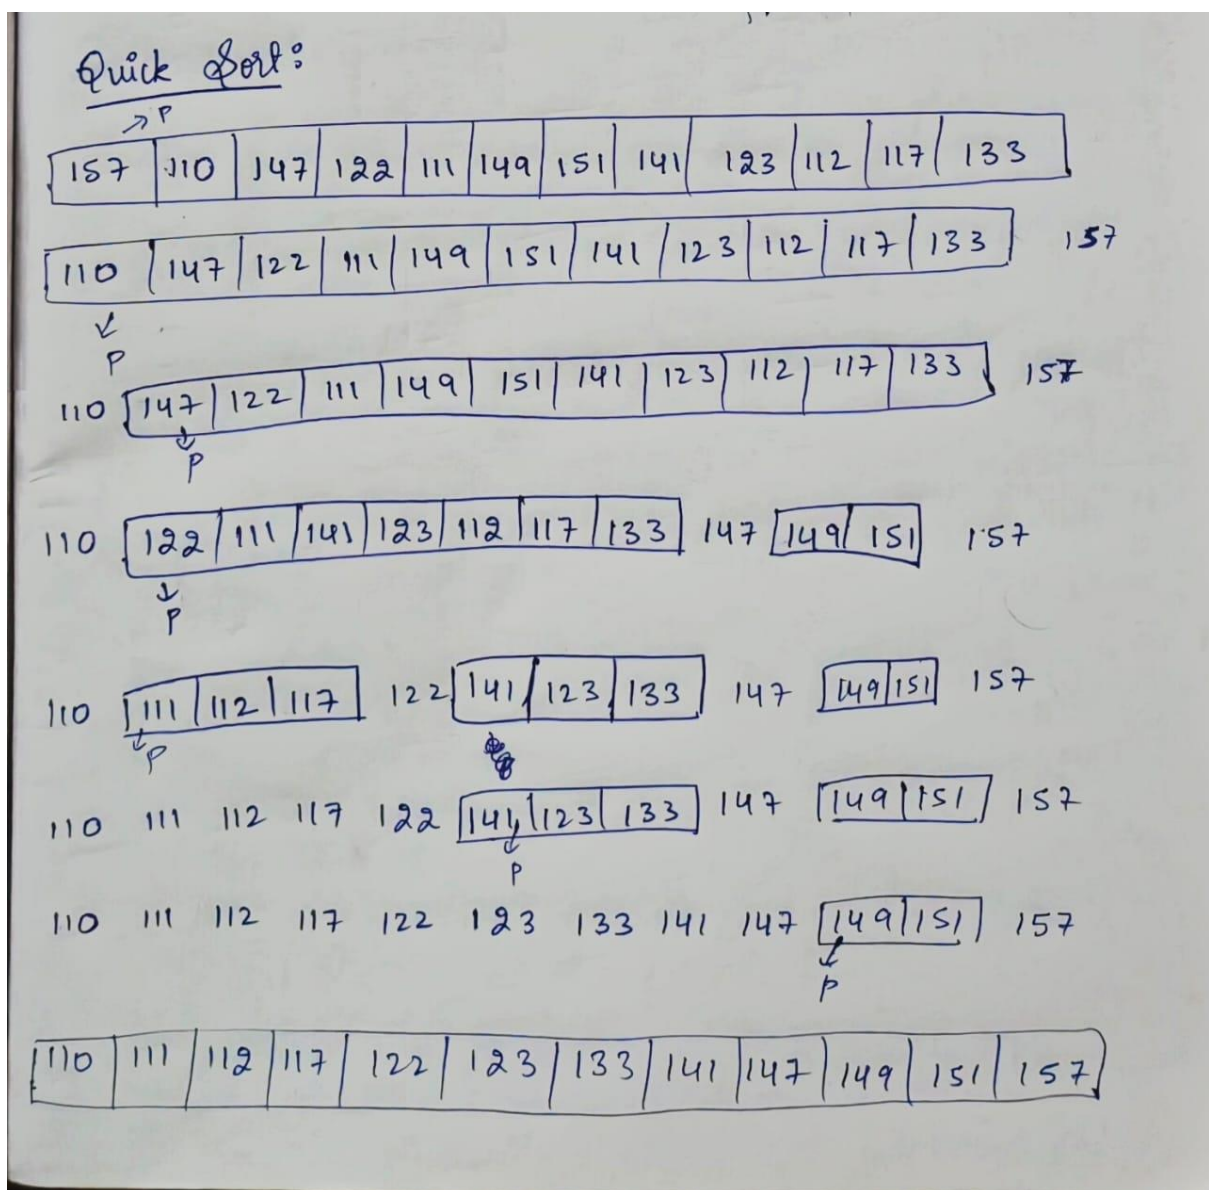 Quick Sort:
→ P
157 110 147 122 111 149 151 141 123 112 117 133
110 147 122 111 149 151 141 123 112 117 133 157
P
110 147 122 111 149 151 141 123 112 117 133 157
P
110 122 111 141 123 112 117 133 147 149 151 157
P
110 111 112 117 122 141 123 133 147 149 151 157
P
110 111 112 117 122 141 123 133 147 149 151 157
P
110 111 112 117 122 123 133 141 147 149 151 157
P
110 111 112 117 122 123 133 141 147 149 151 157